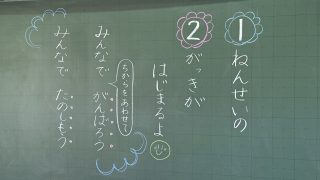 1ねんせいの
2がっきが
はじまるよ
みんなで がんばろう
ちからをあわせて
みんなで たのしもう